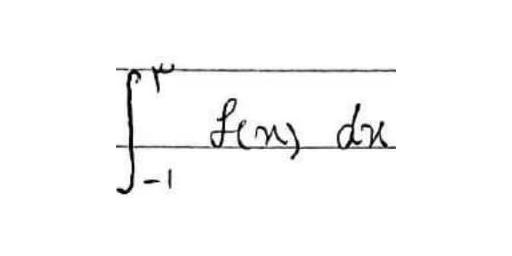 ∫_{-1}^{۳} f(x) dx